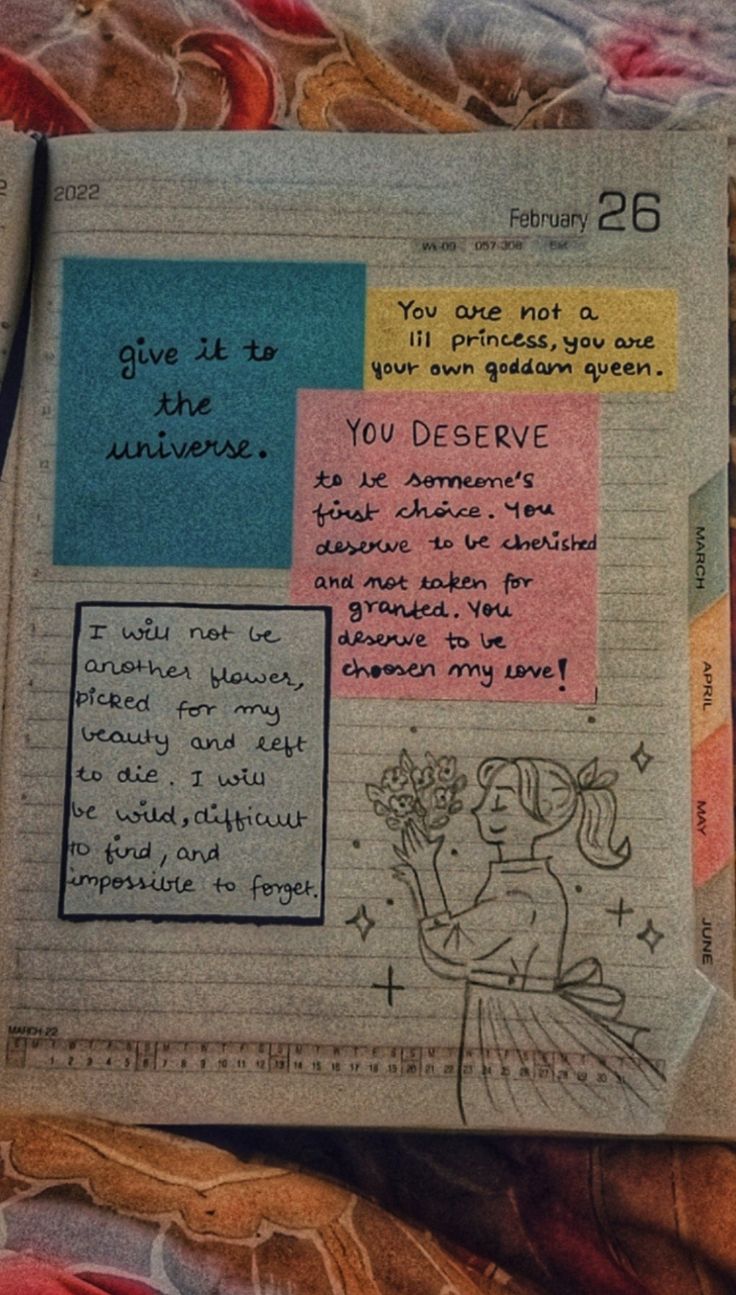 2022
February 26
Wk-09 057-308
give it to
the
universe.
You are not a
lil princess, you are
your own goddam queen.
YOU DESERVE
to be someone's
first choice. You
deserve to be cherished
and not taken for
granted. You
deserve to be
choosen my love!
I will not be
another flower,
picked for my
beauty and left
to die. I will
be wild, difficult
to find, and
impossible to forget.
MARCH
APRIL
MAY
JUNE
MARCH-22
S M T W T F S S M T W T F S S M T W T F S S M T W T F S S M T W T
1 2 3 4 5 6 7 8 9 10 11 12 13 14 15 16 17 18 19 20 21 22 23 24 25 26 27 28 29 30 31